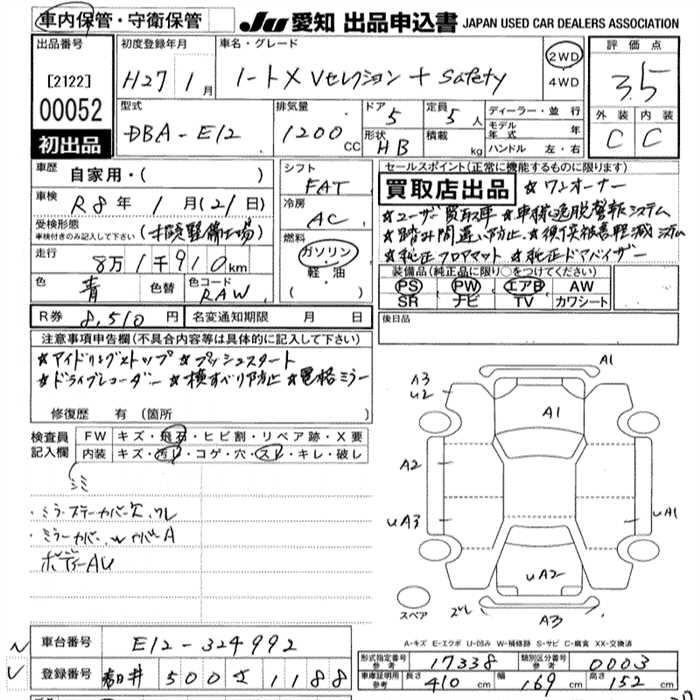 車内保管・守衛保管
JU 愛知 出品申込書 JAPAN USED CAR DEALERS ASSOCIATION
出品番号 [2122] 00052 初出品
初度登録年月 H27 1月
車名・グレード ノート X Vセレクション + Safety
2WD 4WD
評価点 3.5
外装 C 内装 C
型式 DBA-E12
排気量 1200 CC
ドア 5 定員 5人
形状 HB 積載 kg
ディーラー・並行
モデル年式 年
ハンドル 左・右
車歴 自家用・( )
車検 R8年 1月(21日)
受検形態 車検付きのみ記入して下さい (指定整備工場)
走行 8万1千910km
色 青 色替 色コード RAW
シフト FAT
冷房 AC
燃料 ガソリン 軽油 ( )
R券 8,510円 名変通知期限 月 日
セールスポイント(正常に機能するものに限ります)
買取店出品 ★ワンオーナー
★ユーザー買取車 ★車線逸脱警報システム
★踏み間違い防止 ★衝突被害軽減システム
★純正フロアマット ★純正ドアバイザー
装備品(純正品に限り○をつけてください)
PS PW エアB AW
SR ナビ TV カワシート
後日品
注意事項申告欄(不具合内容等は具体的に記入して下さい)
★アイドリングストップ ★プッシュスタート
★ドライブレコーダー ★横すべり防止 ★電格ミラー
修復歴 有 (箇所
検査員記入欄
FW キズ・飛石・ヒビ割・リペア跡・X要
内装 キズ・汚レ・コゲ・穴・スレ・キレ・破レ
シミ
・ミラーカバー
ボディーAU
A1
A3
U2
A1
A2
UA3
UA1
UA2
スペア
スレ
A3
A-キズ E-エクボ U-凹み W-補修跡 S-サビ C-腐食 XX-交換済
車台番号 E12-324992
登録番号 春日井 500 さ 1188
形式指定番号 参考 17338 類別区分番号 参考 0003
車庫証明用 参考 長さ 410cm 幅 169cm 高さ 152cm